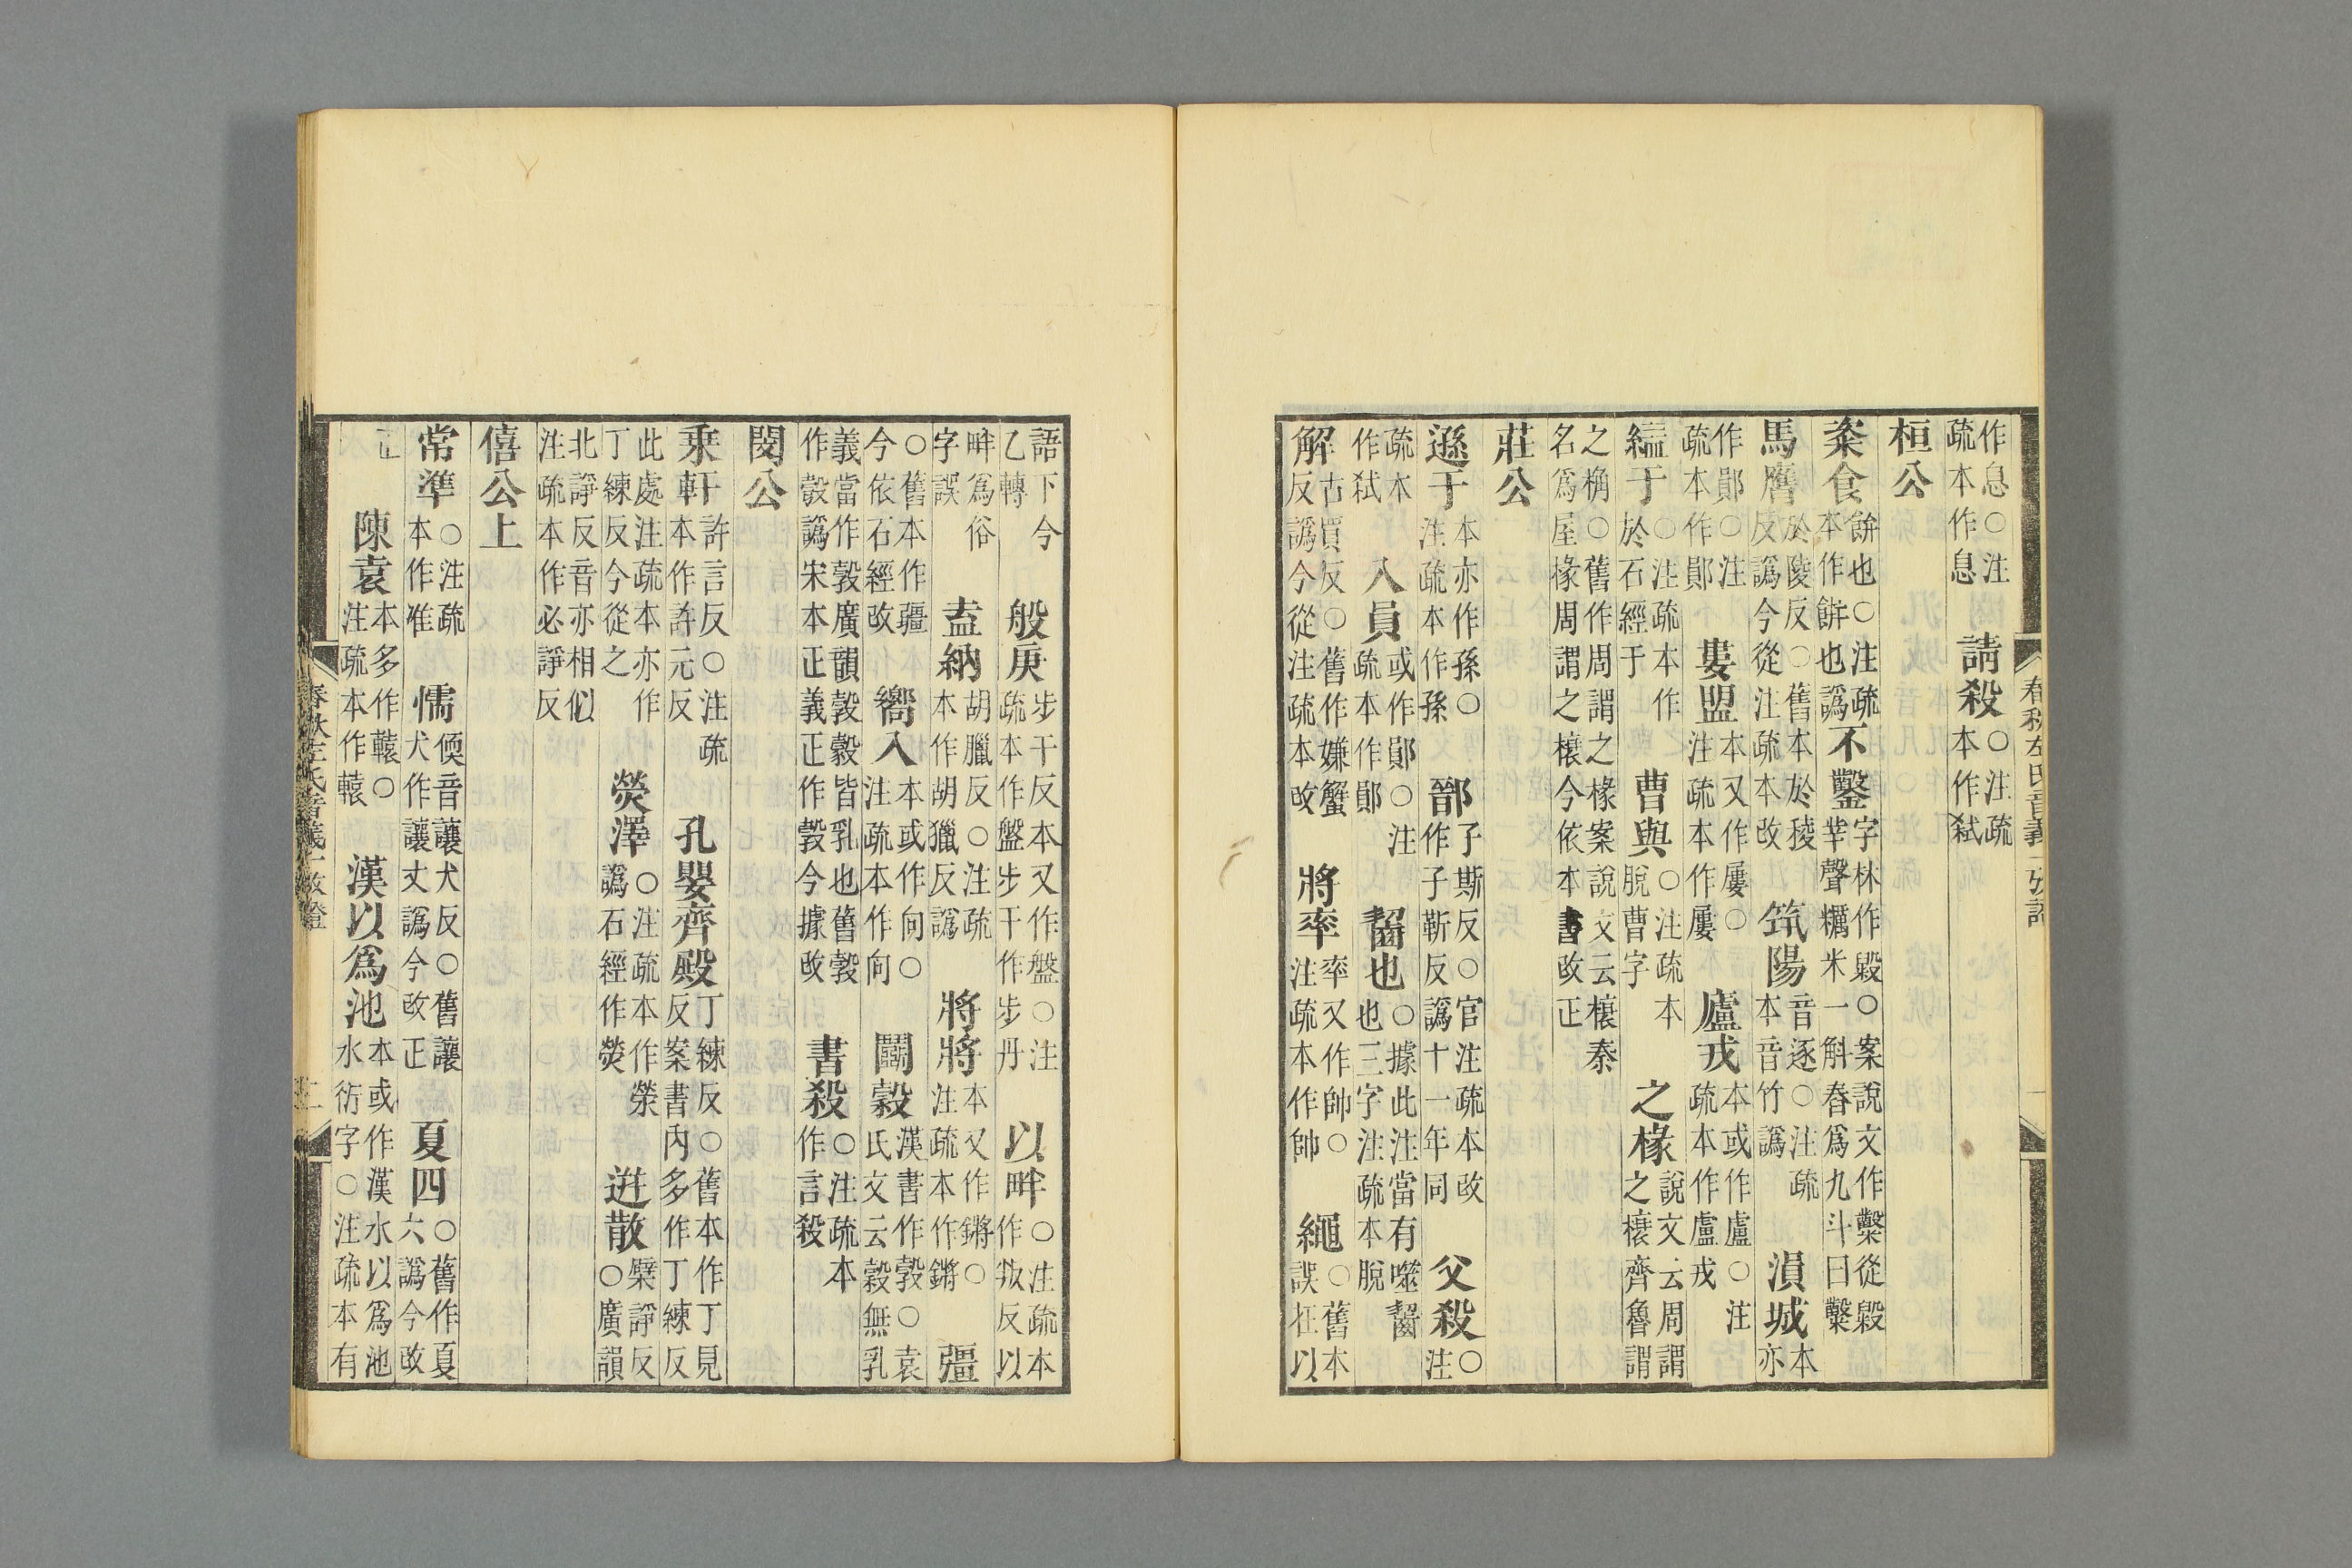 作息○注
疏本作息
請殺○注疏
本作弑
桓公
粢食餅也○注疏
本作餅也譌
不鑿字林作毇○案說文作糳從毇
丵聲糲米一斛舂爲九斗曰糳
馬膺於陵反○舊本於稜
反譌今從注疏本改
筑陽音逐○注疏
本音竹譌
溳城本
亦
作鄖○注
疏本作鄖
婁盟本又作屢○
注疏本作屢
廬戎本或作盧○注
疏本作盧戎
緼于○注疏本作
於石經于
曹與○注疏本
脫曹字
之椽說文云周謂
之榱齊魯謂
之桷○舊作周謂之椽案說文云榱秦
名爲屋椽周謂之榱今依本書改正
莊公
遜于本亦作孫○
注疏本作孫
鄑子斯反○官注疏本改
作子靳反譌十一年同
父殺○
注
疏本
作弑
入員或作鄖○注
疏本作鄖
齧也○據此注當有噬齧
也三字注疏本脫
解古買反○舊作嫌蟹
反譌今從注疏本改
將率率又作帥○
注疏本作帥
繩○舊本
誤在以
語下今
乙轉
般庚步干反本又作盤○注
疏本作盤步干作步丹
以畔○注疏本
作叛反以
畔爲俗
字誤
盍納胡臘反○注疏
本作胡獵反譌
將將本又作鏘○
注疏本作鏘
彊
○舊本作疆
今依石經改
嚮入本或作向○
注疏本作向
鬬穀漢書作㝅○袁
氏文云穀無乳
義當作㝅廣韻㝅縠皆乳也舊縠
作彀譌宋本正義正作㝅今據改
書殺○注疏本
作言殺
閔公
乗軒許言反○注疏
本作許元反
孔嬰齊殿丁練反○舊本作丁見
反案書内多作丁練反
此處注疏本亦作
丁練反今從之
熒澤○注疏本作榮
譌石經作熒
逬散檗諍反
○廣韻
北諍反音亦相似
注疏本作必諍反
僖公上
常準○注疏
本作准
懦偄音讓犬反○舊讓
犬作讓丈譌今改正
夏四○舊作夏
六譌今改
正
陳袁本多作轅○
注疏本作轅
漢以爲池本或作漢水以爲池
水衍字○注疏本有